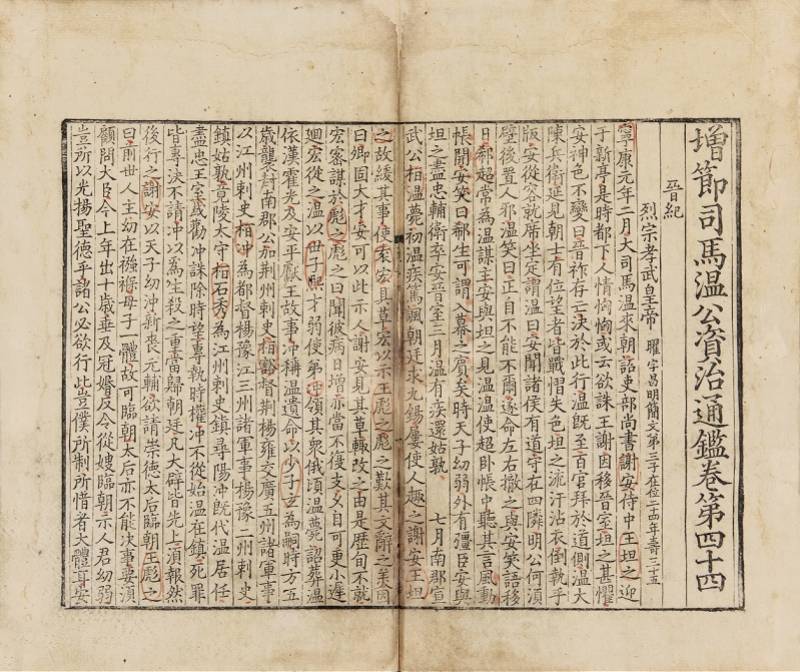 增節司馬温公資治通鑑卷第四十四
晉紀
烈宗孝武皇帝 曜字昌明簡文第三子在位二十四年壽三十五
寧康元年二月大司馬温來朝詔吏部尚書謝安侍中王坦之迎
于新亭是時都下人情恟恟或云欲誅王謝因移晉室坦之甚懼
安神色不變曰晉祚存亡決於此行温既至百官拜於道側温大
陳兵衛延見朝士有位望者皆戰慴失色坦之流汗沾衣倒執手
版安從容就席坐定謂温曰安聞諸侯有道守在四隣明公何須
壁後置人邪温笑曰正自不能不爾遂命左右撤之與安笑語移
日郗超常為温謀主安與坦之見温温使超卧帳中聽其言風動
帳開安笑曰郗生可謂入幕之賔矣時天子幼弱外有彊臣安與
坦之盡忠輔衛卒安晉室三月温有疾還姑孰 七月南郡宣
武公桓温薨初温疾篤諷朝廷求九錫屢使人趣之謝安王坦
之故緩其事使袁宏具草宏以示王彪之彪之歎其文辭之美因
曰卿固大才安可以此示人謝安見其草輙改之由是歴旬不就
宏密謀於彪之彪之曰聞彼病日增亦當不復支久自可更小遲
迴宏從之温以世子熙才弱使弟沖領其衆俄頃温薨詔葬温
依漢霍光及安平獻王故事沖稱温遺命以少子玄為嗣時方五
歳襲封南郡公加荆州刺史桓豁督荆楊雍交廣五州諸軍事
以江州刺史桓沖為都督楊豫江三州諸軍事楊豫二州刺史
鎮姑孰竟陵太守桓石秀為江州刺史鎮尋陽沖既代温居任
盡忠王室或勸沖誅除時望專執時權沖不從始温在鎮死罪
皆專決不請沖以為生殺之重當歸朝廷凡大辟皆先上須報然
後行之謝安以天子幼沖新喪元輔欲請崇德太后臨朝王彪之
曰前世人主幼在襁褓母子一體故可臨朝太后亦不能決事要須
顧問大臣今上年出十歳垂及冠婚反令從嫂臨朝示人君幼弱
豈所以光揚聖德乎諸公必欲行此豈僕所制所惜者大體耳安